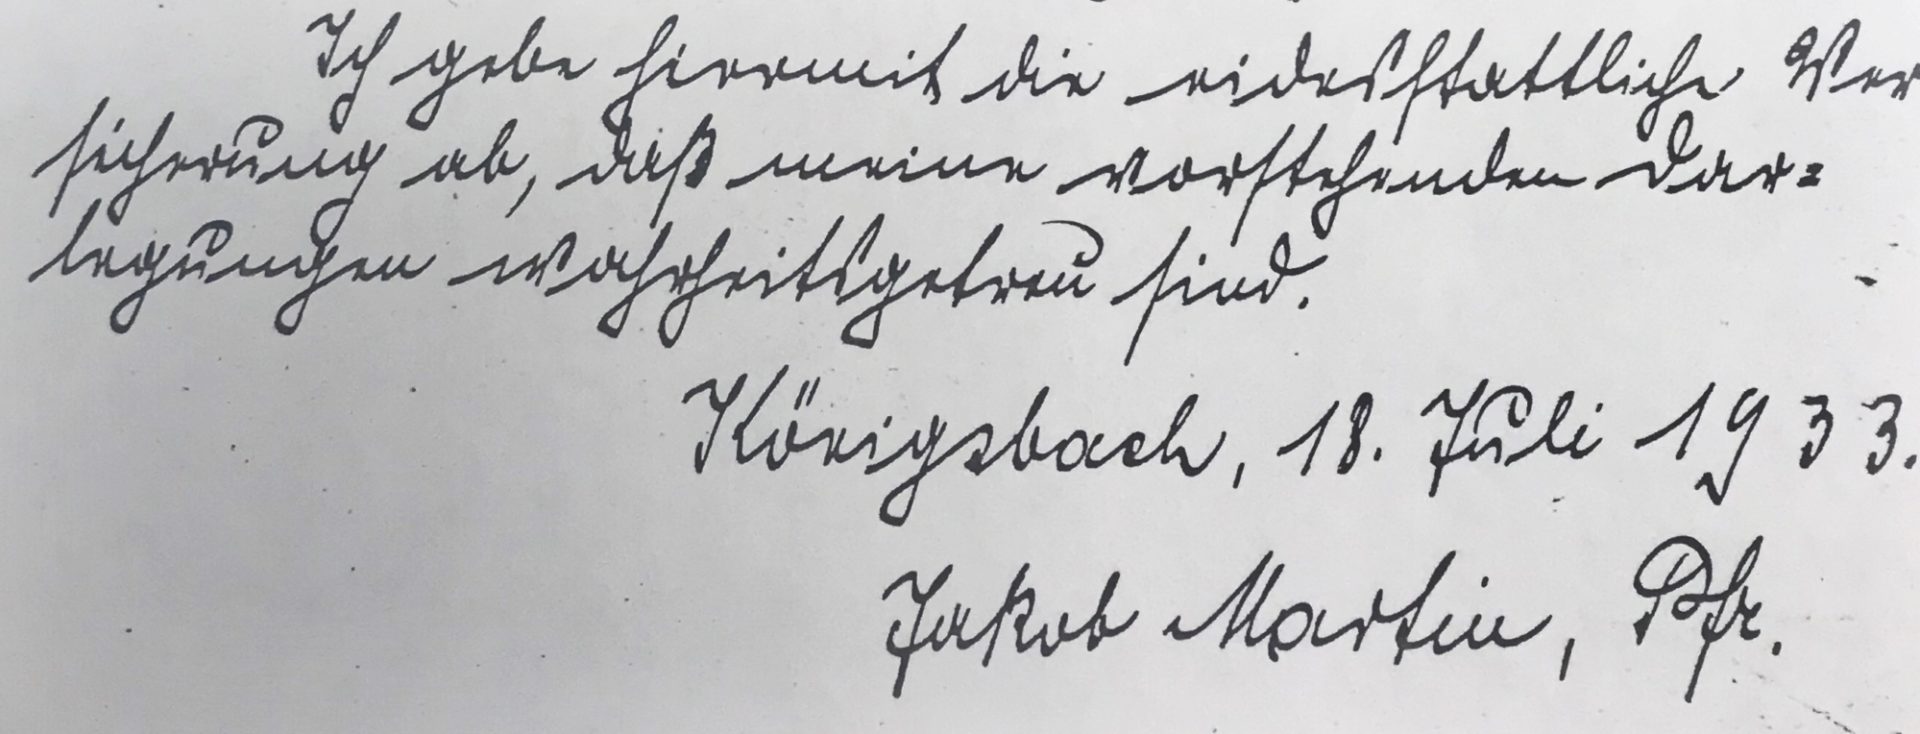 Ich gebe hiermit die eidesstattliche Ver
sicherung ab, daß meine vorstehenden Dar=
legungen wahrheitsgetreu sind.
Königsbach, 18. Juli 1933.
Jakob Martin, Pfr.